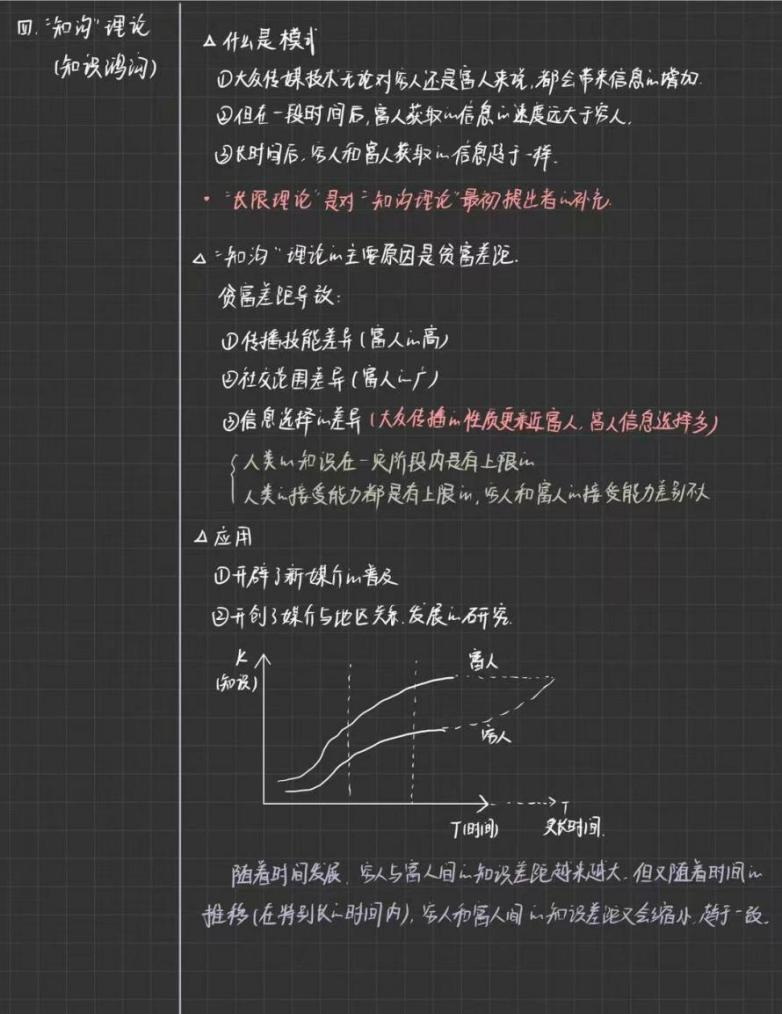 四. “知沟”理论
(知识鸿沟)
△ 什么是模式
①大众传媒技术无论对穷人还是富人来说,都会带来信息的增加.
②但在一段时间后,富人获取的信息的速度远大于穷人.
③长时间后,穷人和富人获取的信息趋于一样.
· “长限理论”是对“知沟理论”最初提出者的补充.
△ “知沟”理论的主要原因是贫富差距.
贫富差距导致:
①传播技能差异(富人的高)
②社交范围差异(富人的广)
③信息选择的差异(大众传播的性质更亲近富人,富人信息选择多)
人类的知识在一定阶段内是有上限的
人类的接受能力都是有上限的,穷人和富人的接受能力差别不大
△ 应用
①开辟了新媒介的普及
②开创了媒介与地区关系.发展的研究.
K
(知识)
富人
穷人
T(时间)
T
更长时间.
随着时间发展.穷人与富人间的知识差距越来越大.但又随着时间的
推移(在特别长的时间内),穷人和富人间的知识差距又会缩小.趋于一致.